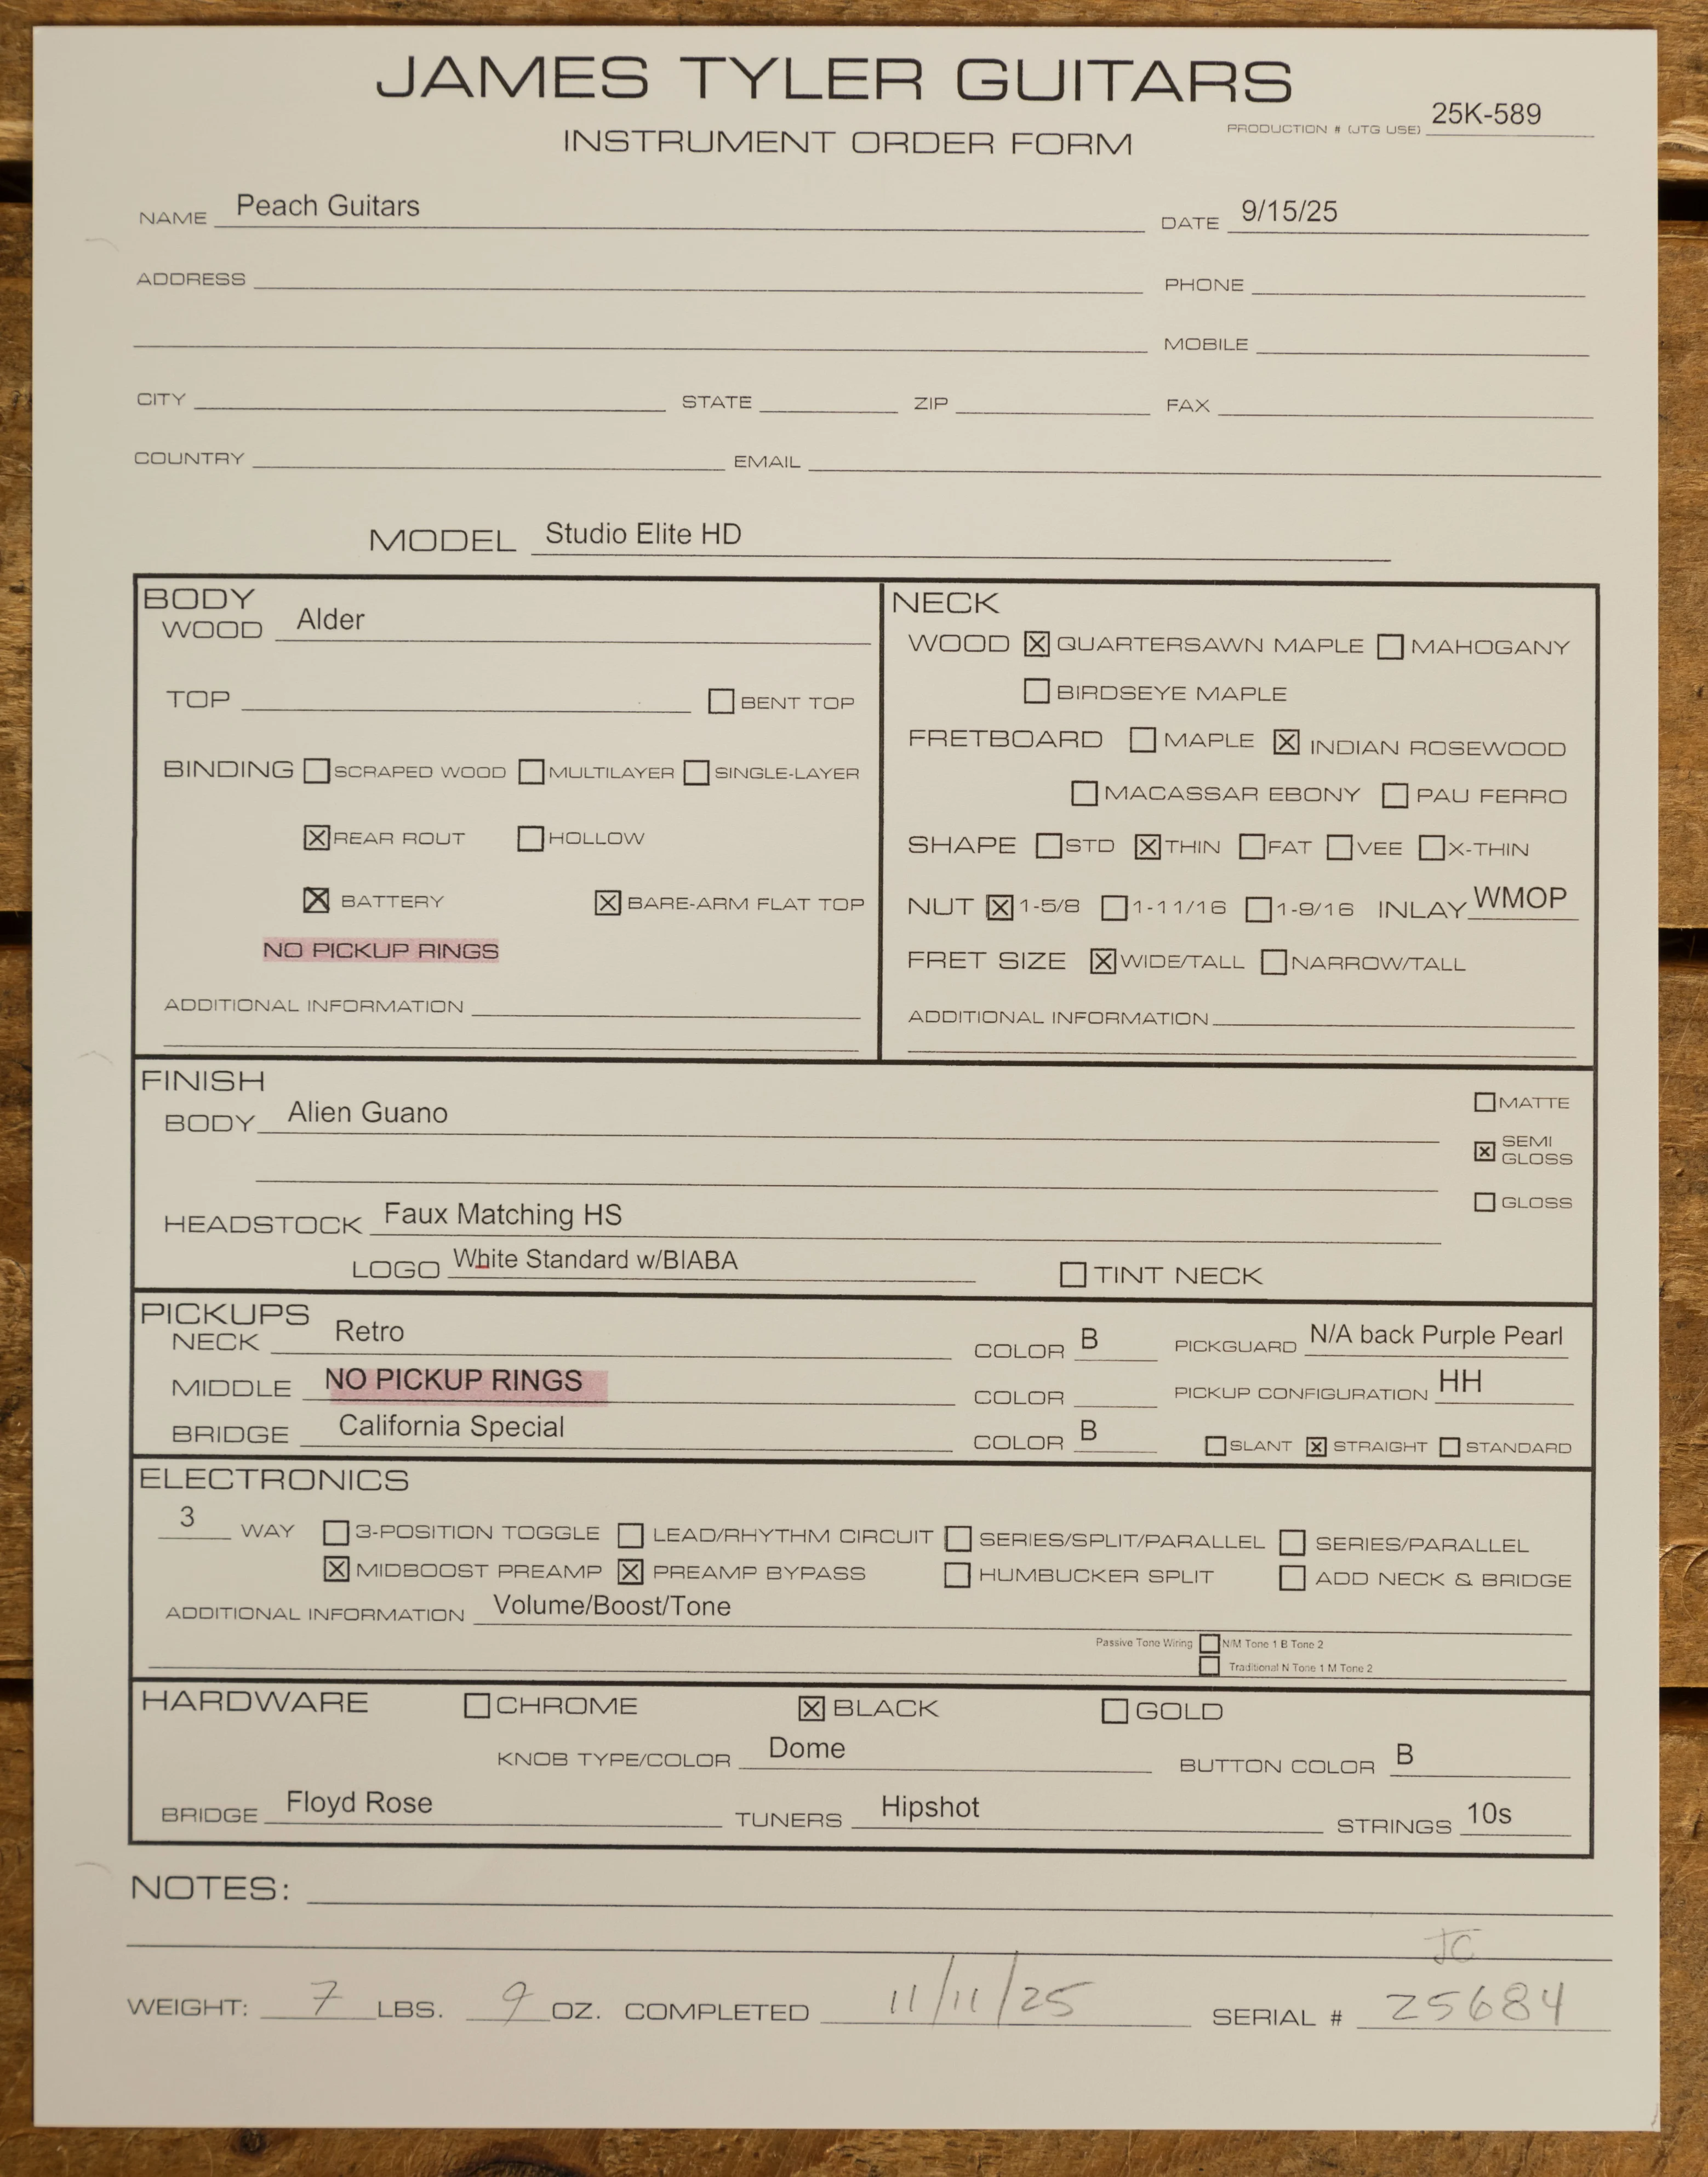 JAMES TYLER GUITARS
INSTRUMENT ORDER FORM
PRODUCTION # (JTG USE) 25K-589
NAME Peach Guitars DATE 9/15/25
ADDRESS PHONE
MOBILE
CITY STATE ZIP FAX
COUNTRY EMAIL
MODEL Studio Elite HD
BODY
WOOD Alder
TOP BENT TOP
BINDING SCRAPED WOOD MULTILAYER SINGLE-LAYER
☒ REAR ROUT HOLLOW
☒ BATTERY ☒ BARE-ARM FLAT TOP
NO PICKUP RINGS
ADDITIONAL INFORMATION
NECK
WOOD ☒ QUARTERSAWN MAPLE MAHOGANY
BIRDSEYE MAPLE
FRETBOARD MAPLE ☒ INDIAN ROSEWOOD
MACASSAR EBONY PAU FERRO
SHAPE STD ☒ THIN FAT VEE X-THIN
NUT ☒ 1-5/8 1-11/16 1-9/16 INLAY WMOP
FRET SIZE ☒ WIDE/TALL NARROW/TALL
ADDITIONAL INFORMATION
FINISH
BODY Alien Guano
MATTE
☒ SEMI GLOSS
GLOSS
HEADSTOCK Faux Matching HS
LOGO White Standard w/BIABA TINT NECK
PICKUPS
NECK Retro COLOR B PICKGUARD N/A back Purple Pearl
MIDDLE NO PICKUP RINGS COLOR PICKUP CONFIGURATION HH
BRIDGE California Special COLOR B SLANT ☒ STRAIGHT STANDARD
ELECTRONICS
3 WAY 3-POSITION TOGGLE LEAD/RHYTHM CIRCUIT SERIES/SPLIT/PARALLEL SERIES/PARALLEL
☒ MIDBOOST PREAMP ☒ PREAMP BYPASS HUMBUCKER SPLIT ADD NECK & BRIDGE
ADDITIONAL INFORMATION Volume/Boost/Tone
Passive Tone Wiring N/M Tone 1 B Tone 2
Traditional N Tone 1 M Tone 2
HARDWARE CHROME ☒ BLACK GOLD
KNOB TYPE/COLOR Dome BUTTON COLOR B
BRIDGE Floyd Rose TUNERS Hipshot STRINGS 10s
NOTES:
JC
WEIGHT: 7 LBS. 9 OZ. COMPLETED 11/11/25 SERIAL # 25684